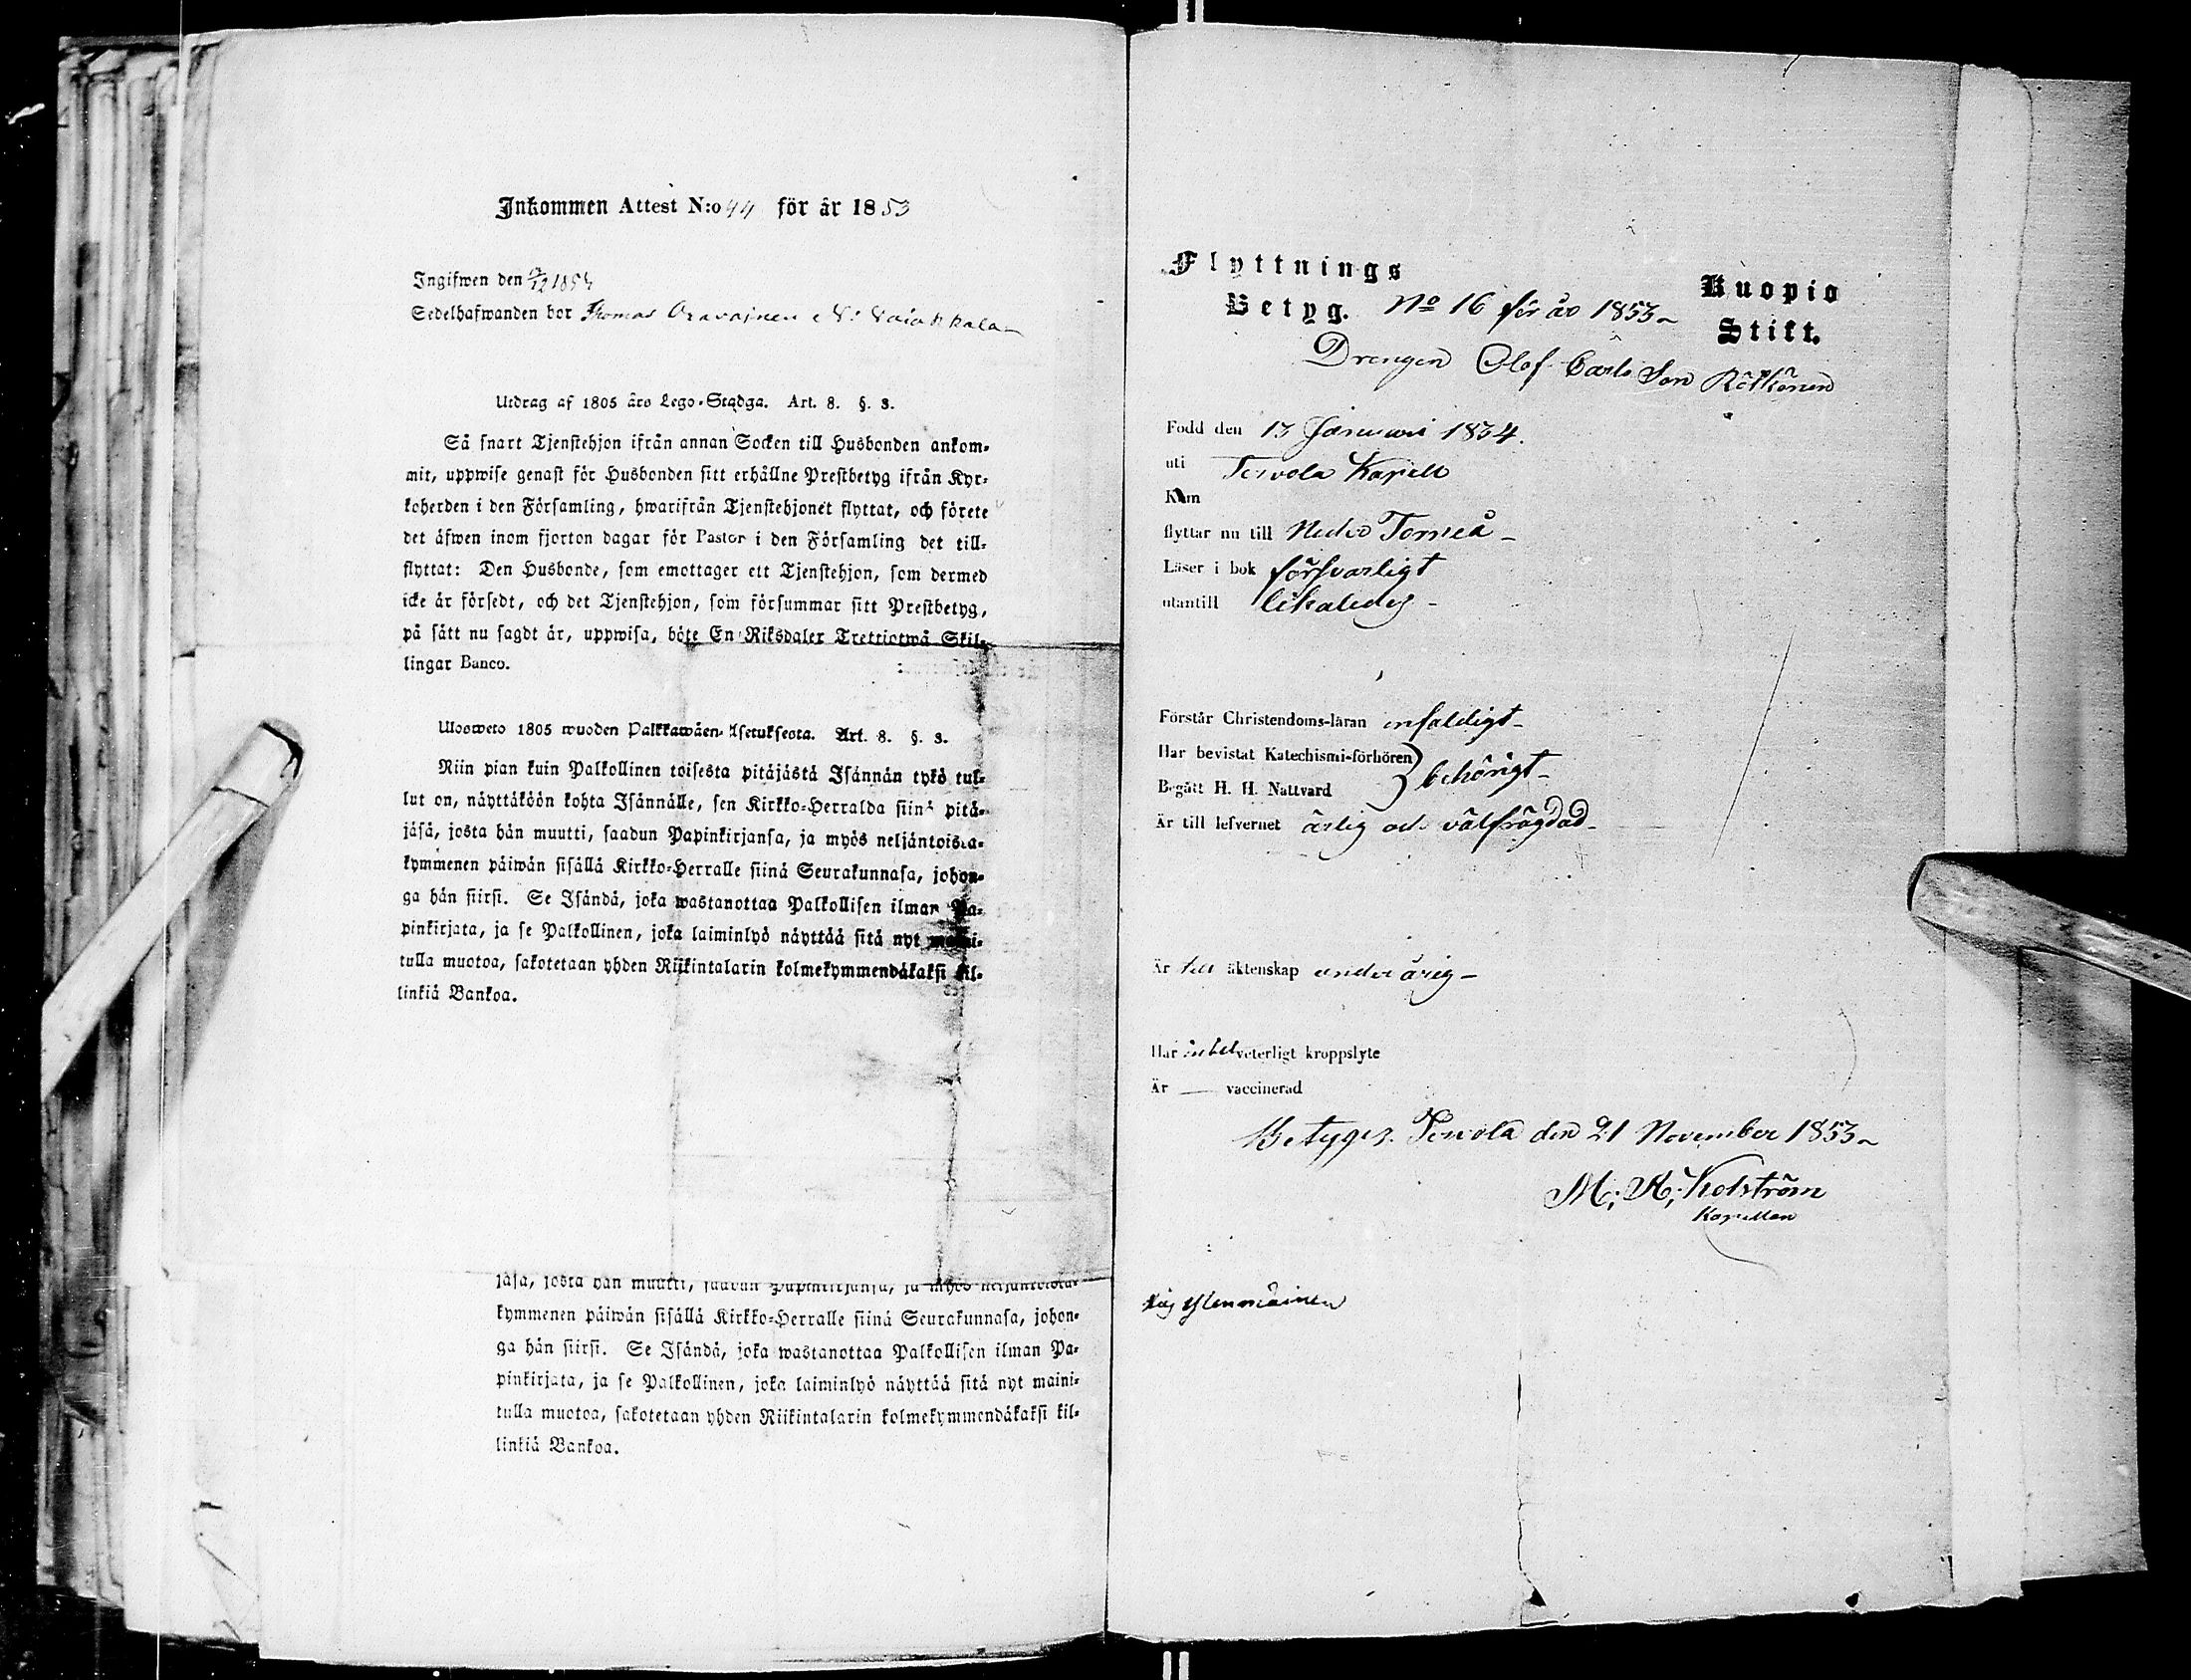 Inkommen Attest N:o 44 för år 1853
Ingifwen den 9/12 1853
Sedelhafwanden bor Thomas Oravainen N:
Utdrag af 1805 års Lego-Stadga. Art. 8. §. 3.
Så snart Tjenstehjon ifrån annan Socken till Husbonden ankom-
mit, uppwise genast för Husbonden sitt erhållne Prestbetyg ifrån Kyr-
koherden i den Församling, hwarifrån Tjenstehjonet flyttat, och förete
det äfwen inom fjorton dagar för Pastor i den Församling det till-
flyttat: Den Husbonde, som emottager ett Tjenstehjon, som dermed
icke är försedt, och det Tjenstehjon, som försummar sitt Prestbetyg,
på sätt nu sagdt är, uppwisa, böte En Riksdaler Trettiotwå Skil-
lingar Banco.
Ulosweto 1805 wuoden Palkkawäen-Asetuksesta. Art. 8. §. 3.
Niin pian kuin Palkollinen toisesta pitäjästä Isännän tykö tul-
lut on, näyttäköön kohta Isännälle, sen Kirkko-Herralda siinä pitä-
jäsä, josta hän muutti, saadun Papinkirjansa, ja myös neljäntoista-
kymmenen päiwän sisällä Kirkko-Herralle siinä Seurakunnasa, johon-
ga hän siirsi. Se Isändä, joka wastanottaa Palkollisen ilman Pa-
pinkirjata, ja se Palkollinen, joka laiminlyö näyttää sitä nyt maini-
tulla muotoa, sakotetaan yhden Riikintalarin kolmekymmendäkaksi kil-
linkiä Bankoa.
jäsä, josta hän muutti, saadun Papinkirjansa, ja myös neljäntoista-
kymmenen päiwän sisällä Kirkko-Herralle siinä Seurakunnasa, johon-
ga hän siirsi. Se Isändä, joka wastanottaa Palkollisen ilman Pa-
pinkirjata, ja se Palkollinen, joka laiminlyö näyttää sitä nyt maini-
tulla muotoa, sakotetaan yhden Riikintalarin kolmekymmendäkaksi kil-
linkiä Bankoa.
Flyttnings
Betyg. No 16 för år 1853 Kuopio
Stift.
Drengen Olof Carls Son Rötkönen
Född den 13 Januari 1834.
uti Tervola Kapell
Kom
flyttar nu till Neder Torneå
Läser i bok försvarligt
utantill likaledes
Förstår Christendoms-läran enfaldigt
Har bevistat Katechismi-förhören
Begått H. H. Nattvard behörigt
Är till lefvernet ärlig och välfrägdad
Är till äktenskap underårig
Har intet veterligt kroppslyte
Är — vaccinerad
Betyges. Tervola den 21 November 1853
M. A. Holström
Kapellan